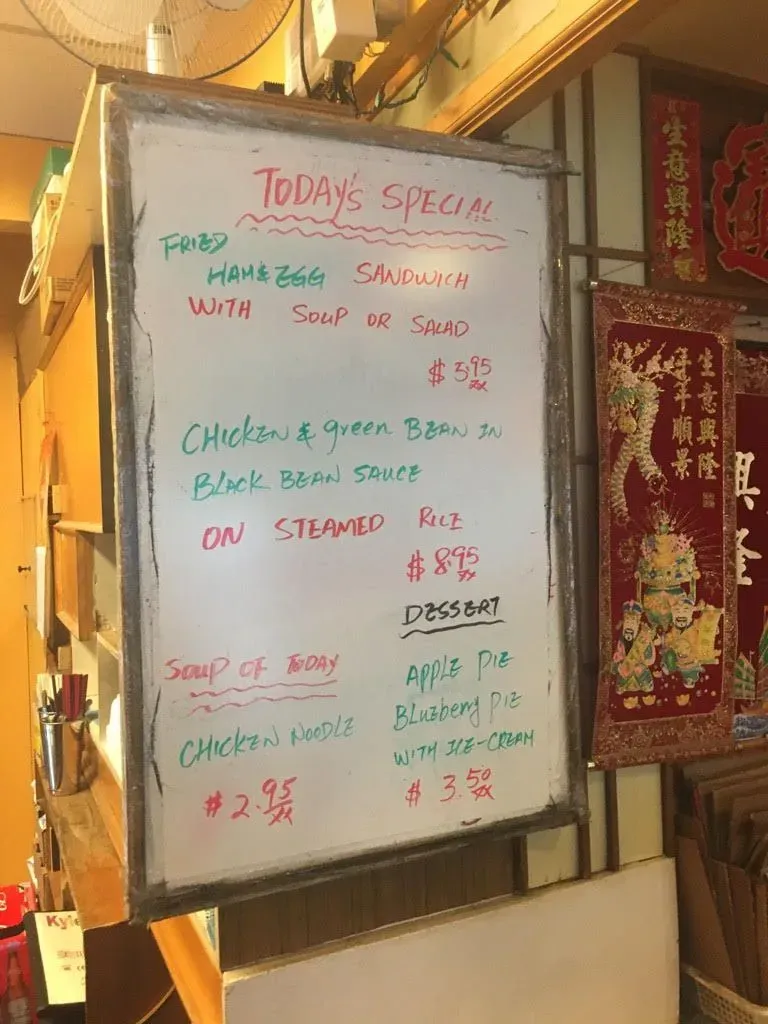 TODAY'S SPECIAL
FRIED
HAM & EGG SANDWICH
WITH SOUP OR SALAD
$ 5.95
CHICKEN & green BEAN IN
BLACK BEAN SAUCE
ON STEAMED RICE
$ 8.95
DESSERT
APPLE PIE
BluEberry PIE
WITH ICE-CREAM
$ 3.50
SOUP OF TODAY
CHICKEN NOODLE
$ 2.95
生意興隆
生意興隆
年年順景
興隆
Kyle